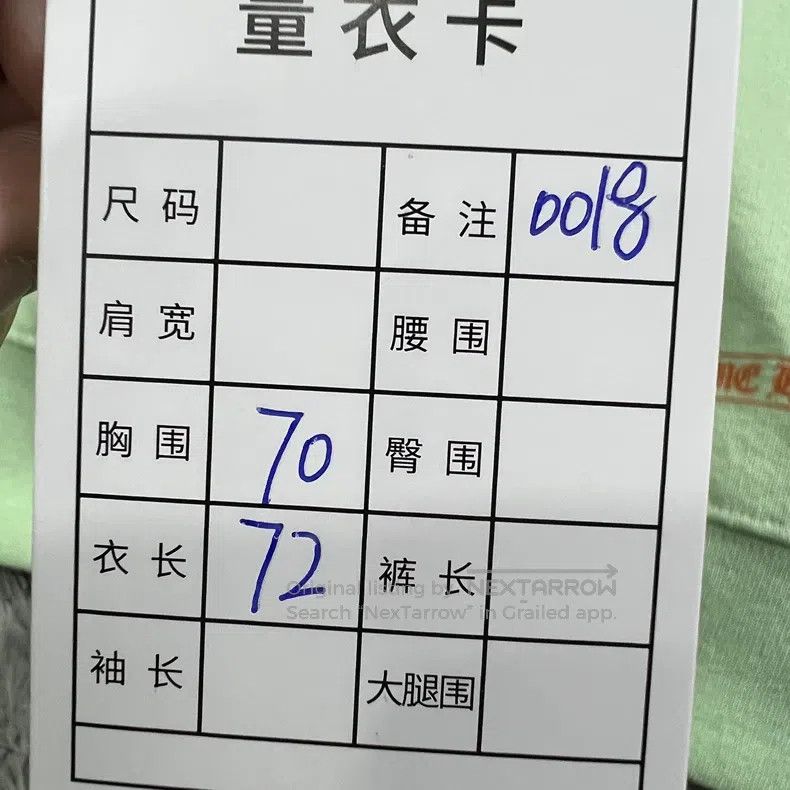 量衣卡
尺码 备注 0018
肩宽 腰围
胸围 70 臀围
衣长 72 裤长
袖长 大腿围
Original listing by NEXTARROW
Search "NexTarrow" in Grailed app.